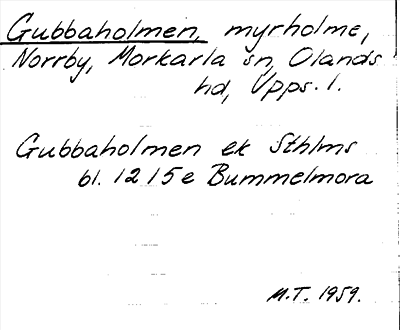 Gubbaholmen, myrholme,
Norrby, Morkarla sn, Olands
hd, Upps. l.
Gubbaholmen ek Sthlms
bl. 12 15 e Bummelmora
M.T. 1959.